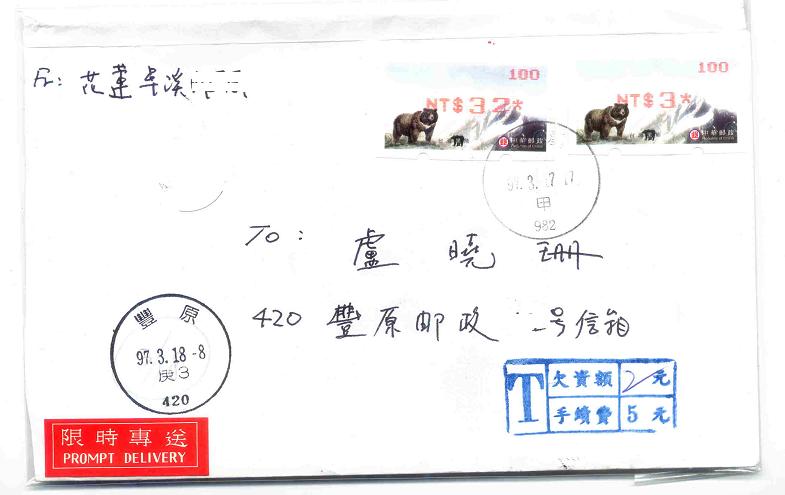 Fr: 花蓮卓溪
100
NT$32*
中華郵政
100
NT$3*
中華郵政
97.3.17.17
甲
982
To: 盧曉珊
420 豐原邮政 号信箱
豐原
97.3.18-8
庚3
420
T 欠資額 2元
手續費 5元
限時專送
PROMPT DELIVERY